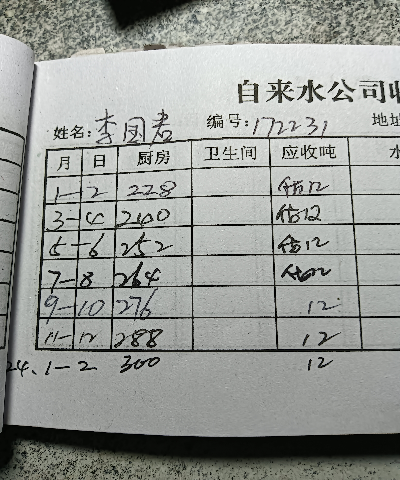 自来水公司收
姓名: 李国君 编号: 172231 地址
月 日 厨房 卫生间 应收吨 水
1-2 228 估12
3-4 240 估12
5-6 252 估12
7-8 264 估12
9-10 276 12
11-12 288 12
24.1-2 300 12